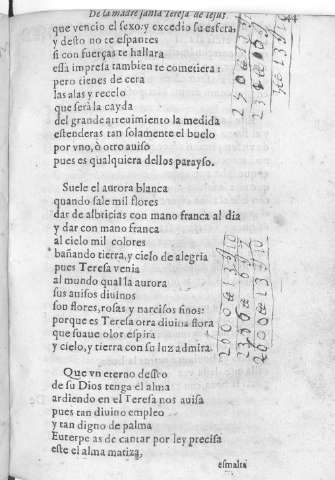 De la madre santa Teresa de Iesus. 44
que vencio el sexo, y excedio su esfera:
y desto no te espantes
si con fuerças te hallara
essa impresa tambien te cometiera:
pero tienes de cera
las alas y recelo
que serà la cayda
del grande atreuimiento la medida
estenderas tan solamente el buelo
por vno, ò otro auiso
pues es qualquiera dellos parayso.
Suele el aurora blanca
quando sale mil flores
dar de albricias con mano franca al dia
y dar con mano franca
al cielo mil colores
bañando tierra, y cielo de alegria
pues Teresa venia
al mundo qual la aurora
sus auisos diuinos
son flores, rosas y narcisos finos:
porque es Teresa otra diuina flora
que suaue olor espira
y cielo, y tierra con su luz admira.
Que vn eterno destro
de su Dios tenga el alma
ardiendo en el Teresa nos auisa
pues tan diuino empleo
y tan digno de palma
Euterpe as de cantar por ley precisa
este el alma matiza,
esmalta